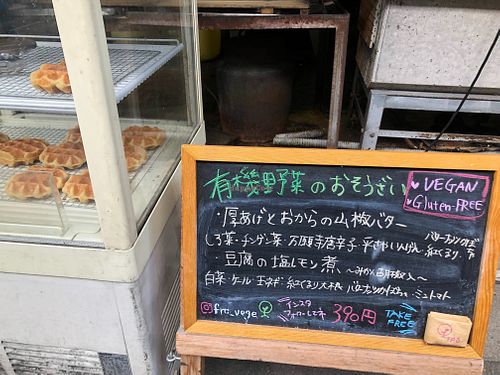 有機野菜のおそうざい
♥VEGAN
♥Gluten-FREE
・厚あげとおからの山椒バター
しろ菜・チンゲン菜・万願寺唐辛子・平さやいんげん
バターナッツかぼちゃ
紅くるり
・豆腐の塩レモン煮
〜みかん胡椒入〜
白菜・ケール・玉ネギ・紅くるり大根 バターナッツかぼちゃ・ミニトマト
fro_vege
インスタ
フォローしてネ
390円
TAKE
FREE